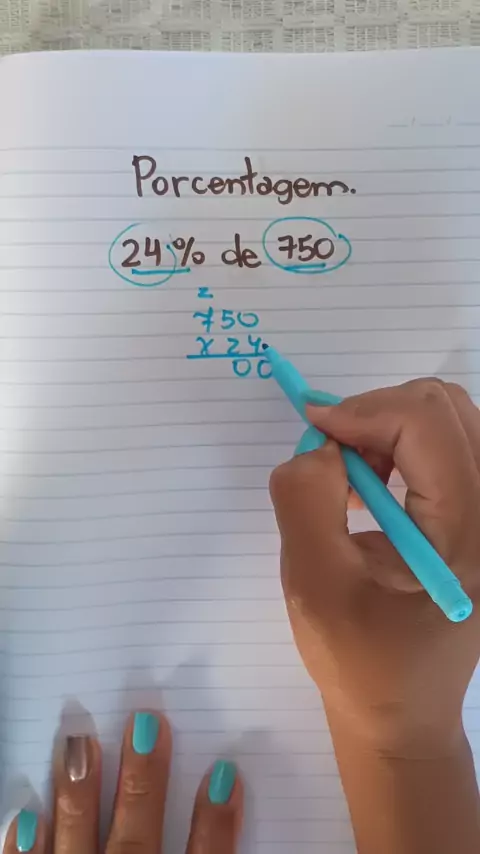 Porcentagem.
24% de 750
2
750
x 24
00